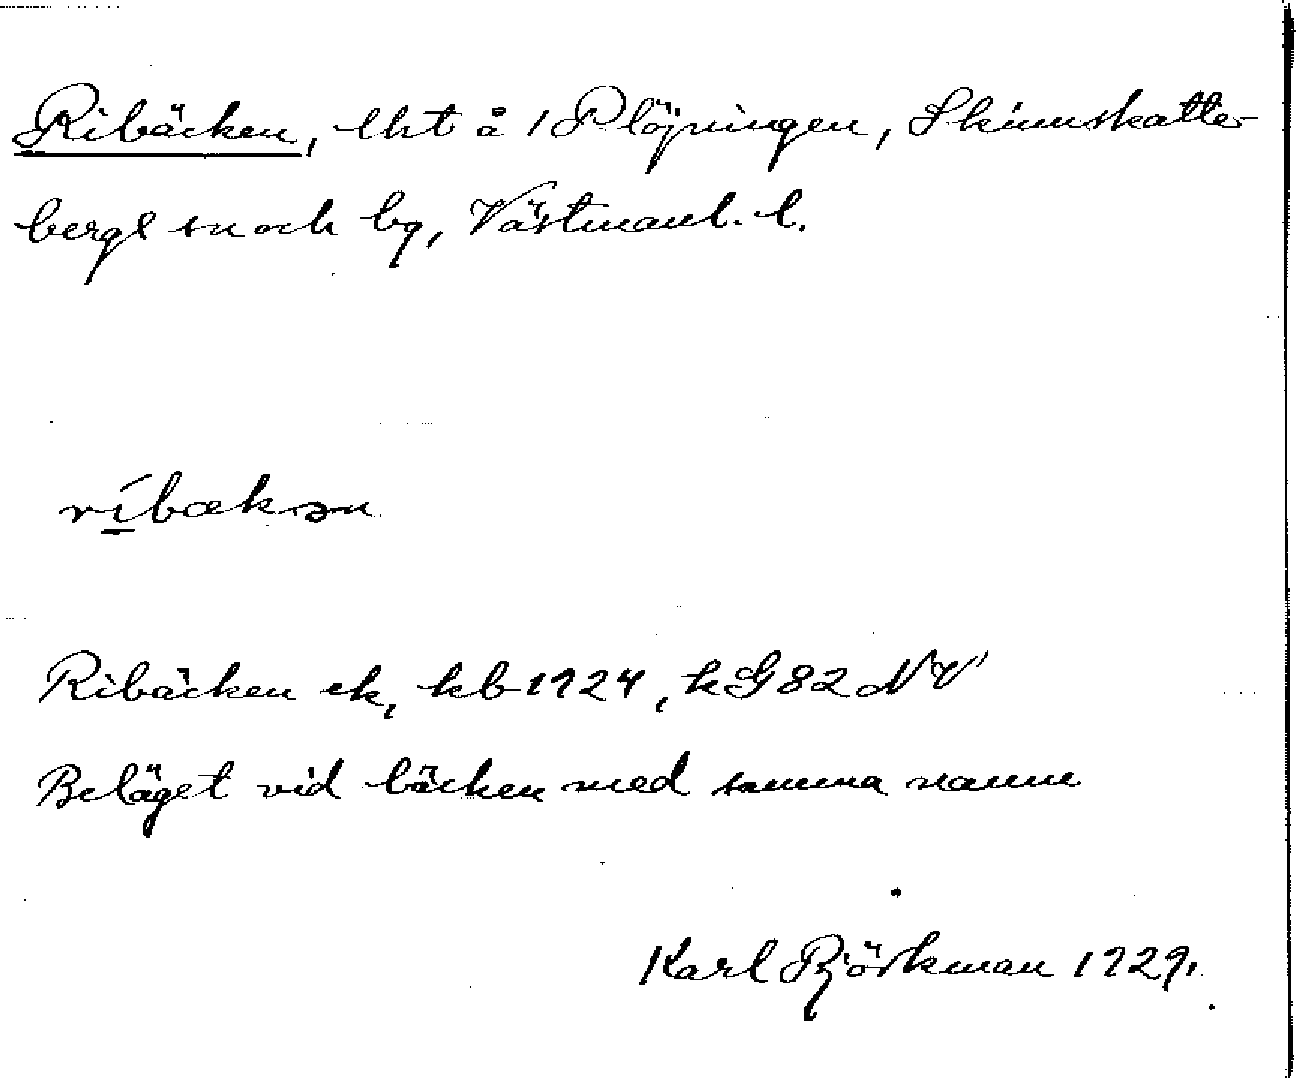 Ribäcken, lht å 1 Plöjningen, Skinnskatte-
bergs sn och bg, Västmanl. l.
ríbækən
Ribäcken ek, kb 1924, k G82 NV
Beläget vid bäcken med samma namn
Karl Björkman 1929.